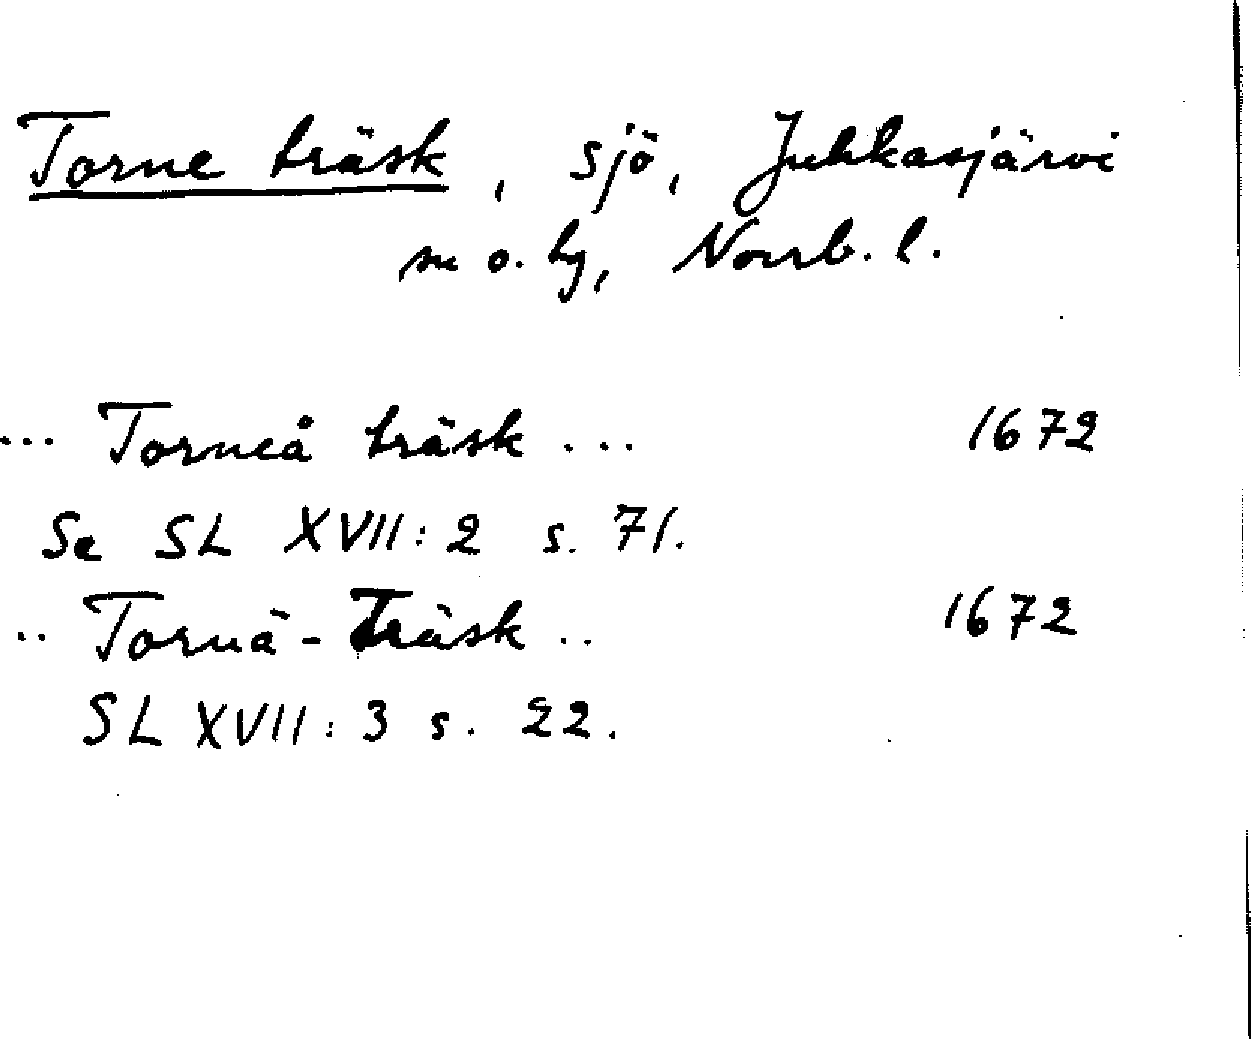 Torne träsk, sjö, Jukkasjärvi
sn o. hg, Norrb. l.
... Torneå träsk ... 1672
Se SL XVII:2 s. 71.
.. Tornä-Träsk .. 1672
SL XVII:3 s. 22.